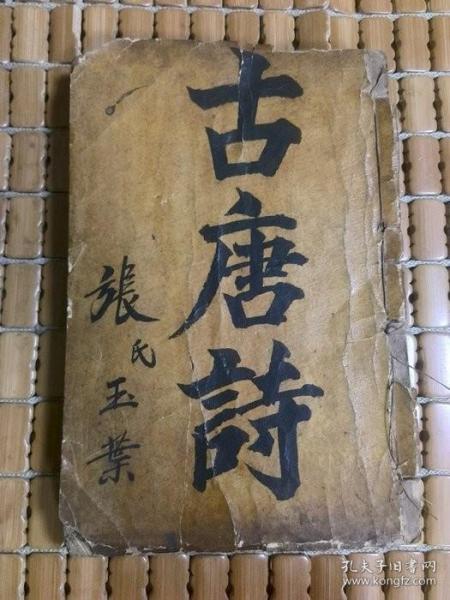 古唐詩
張氏玉葉
孔夫子旧书网
www.kongfz.com